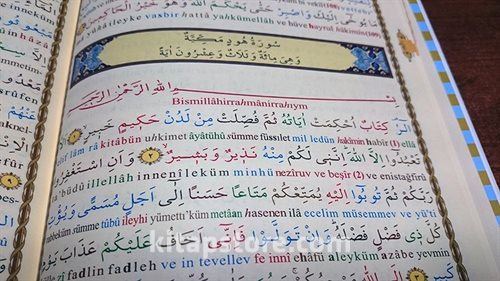 مَا يُوحٰٓى اِلَيْكَ وَاصْبِرْ حَتّٰى يَحْكُمَ اللّٰهُ وَهُوَ خَيْرُ الْحَاكِم۪ينَ
hattâ yahkümellâh ve hüve hayrul hâkimîn(109)
سُورَةُ هُودٍ مَكِّيَّةٌ
وَهِىَ مِائَةٌ وَثَلَاثٌ وَعِشْرُونَ اٰيَةً
بِسْمِ اللّٰهِ الرَّحْمٰنِ الرَّح۪يمِ
Bismillâhirrahmânirrahıym
الٓرٰ كِتَابٌ اُحْكِمَتْ اٰيَاتُهُ ثُمَّ فُصِّلَتْ مِنْ لَدُنْ حَك۪يمٍ خَب۪يرٍ
elif lâm râ kitâbün uhkimet âyâtühû sümme füssilet mil ledün hakîmin habîr (1) ellâ
تَعْبُدُٓوا اِلَّا اللّٰهَ اِنَّن۪ى لَكُمْ مِنْهُ نَذ۪يرٌ وَبَش۪يرٌ ٢ وَاَنِ اسْتَغْفِرُوا
ta'büdû illellâh innenî leküm minhü nezîruv ve beşîr (2) ve enistağfirû
رَبَّكُمْ ثُمَّ تُوبُٓوا اِلَيْهِ يُمَتِّعْكُمْ مَتَاعًا حَسَنًا اِلٰٓى اَجَلٍ مُسَمًّى وَيُؤْتِ
rabbeküm sümme tûbû ileyhi yümetti'küm metâan hasenen ilâ ecelim müsemmev ve yü'ti
كُلَّ ذ۪ى فَضْلٍ فَضْلَهُ وَاِنْ تَوَلَّوْا فَاِنّ۪ٓى اَخَافُ عَلَيْكُمْ عَذَابَ يَوْمٍ
külle zî fadlin fadleh ve in tevellev fe innî ehâfü aleyküm azâbe yevmin
kitapstore.com